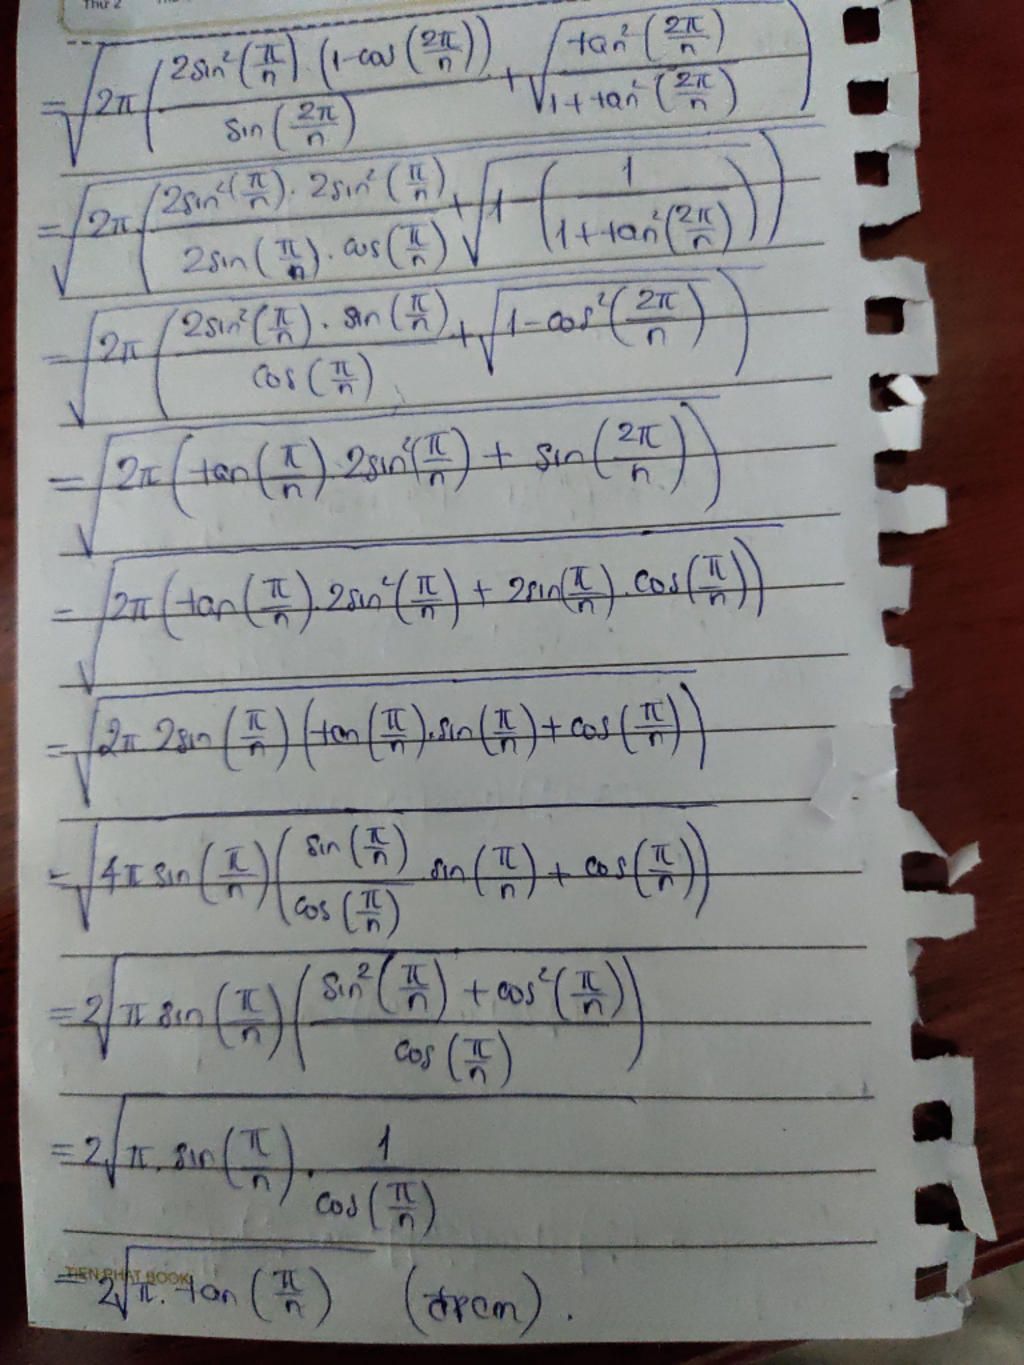 Thứ 2
= √(2π((2sin²(π/n).(1-cos(2π/n)))/(sin(2π/n)) + √((tan²(2π/n))/(1+tan²(2π/n)))))
= √(2π((2sin²(π/n).2sin²(π/n))/(2sin(π/n).cos(π/n)) + √(1-(1/(1+tan²(2π/n))))))
= √(2π((2sin²(π/n).sin(π/n))/(cos(π/n)) + √(1-cos²(2π/n))))
= √(2π(tan(π/n).2sin²(π/n) + sin(2π/n)))
= √(2π(tan(π/n).2sin²(π/n) + 2sin(π/n).cos(π/n)))
= √(2π 2sin(π/n)(tan(π/n).sin(π/n) + cos(π/n)))
= √(4π sin(π/n)((sin(π/n))/(cos(π/n)).sin(π/n) + cos(π/n)))
= 2√(π sin(π/n)((sin²(π/n) + cos²(π/n))/(cos(π/n))))
= 2√(π.sin(π/n).1/(cos(π/n)))
TIEN PHAT BOOK
= 2√(π.tan(π/n)) (đpcm).